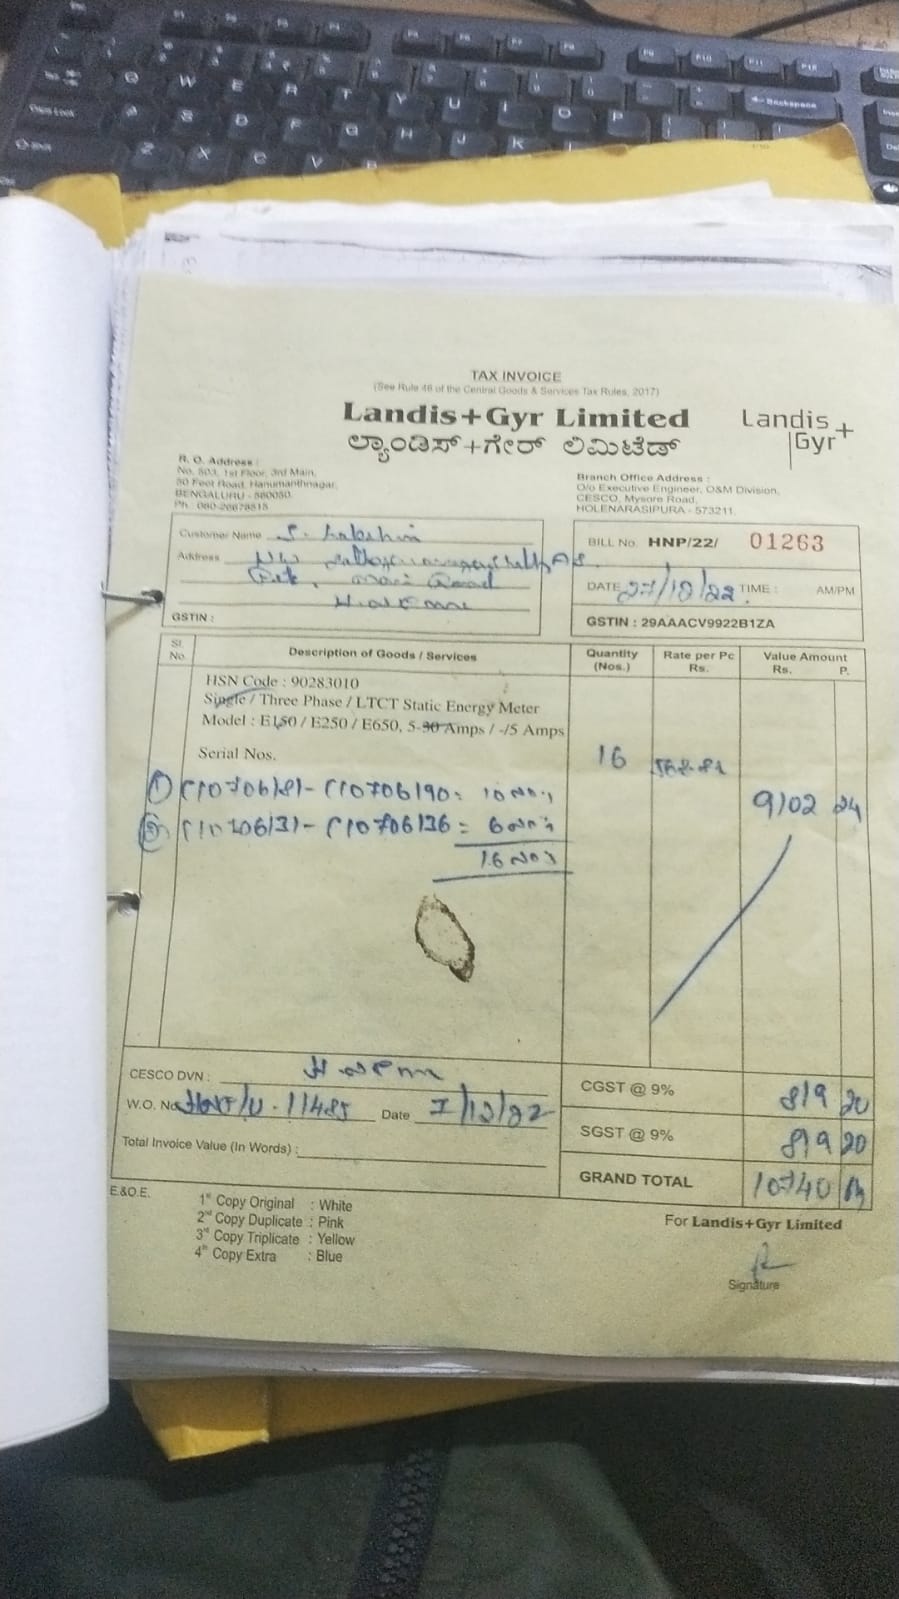 TAX INVOICE
(See Rule 46 of the Central Goods & Services Tax Rules, 2017)
Landis+Gyr Limited
ಲ್ಯಾಂಡಿಸ್+ಗೇರ್ ಲಿಮಿಟೆಡ್
Landis
|Gyr+
R. O. Address :
No. 503, 1st Floor, 3rd Main,
50 Feet Road, Hanumanthnagar,
BENGALURU - 560050.
Ph : 080-26678515
Branch Office Address :
O/o Executive Engineer, O&M Division,
CESCO, Mysore Road,
HOLENARASIPURA - 573211.
Customer Name S.
Address
Road
GSTIN :
BILL No. HNP/22/ 01263
DATE 27/12/22 TIME : AM/PM
GSTIN : 29AAACV9922B1ZA
Sl. No.
Description of Goods / Services
Quantity (Nos.)
Rate per Pc Rs.
Value Amount Rs. P.
HSN Code : 90283010
Single / Three Phase / LTCT Static Energy Meter
Model : E150 / E250 / E650, 5-30 Amps / -/5 Amps
Serial Nos.
16
① C10706181- C10706190= 10 nos
9102 24
② C10706131- C10706136 = 6 nos
16 nos
CESCO DVN :
W.O. No. 11485 Date 7/12/22
Total Invoice Value (In Words) :
CGST @ 9% 819 20
SGST @ 9% 819 20
GRAND TOTAL 10740
E.&O.E.
1st Copy Original : White
2nd Copy Duplicate : Pink
3rd Copy Triplicate : Yellow
4th Copy Extra : Blue
For Landis+Gyr Limited
Signature